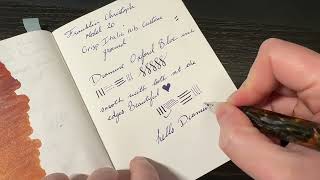 Franklin Christoph
Model 20
Crisp Italic nib custom
ground
Diamine Oxford Blue and
smooth with both not the
edges. Beautiful
hello Diamin